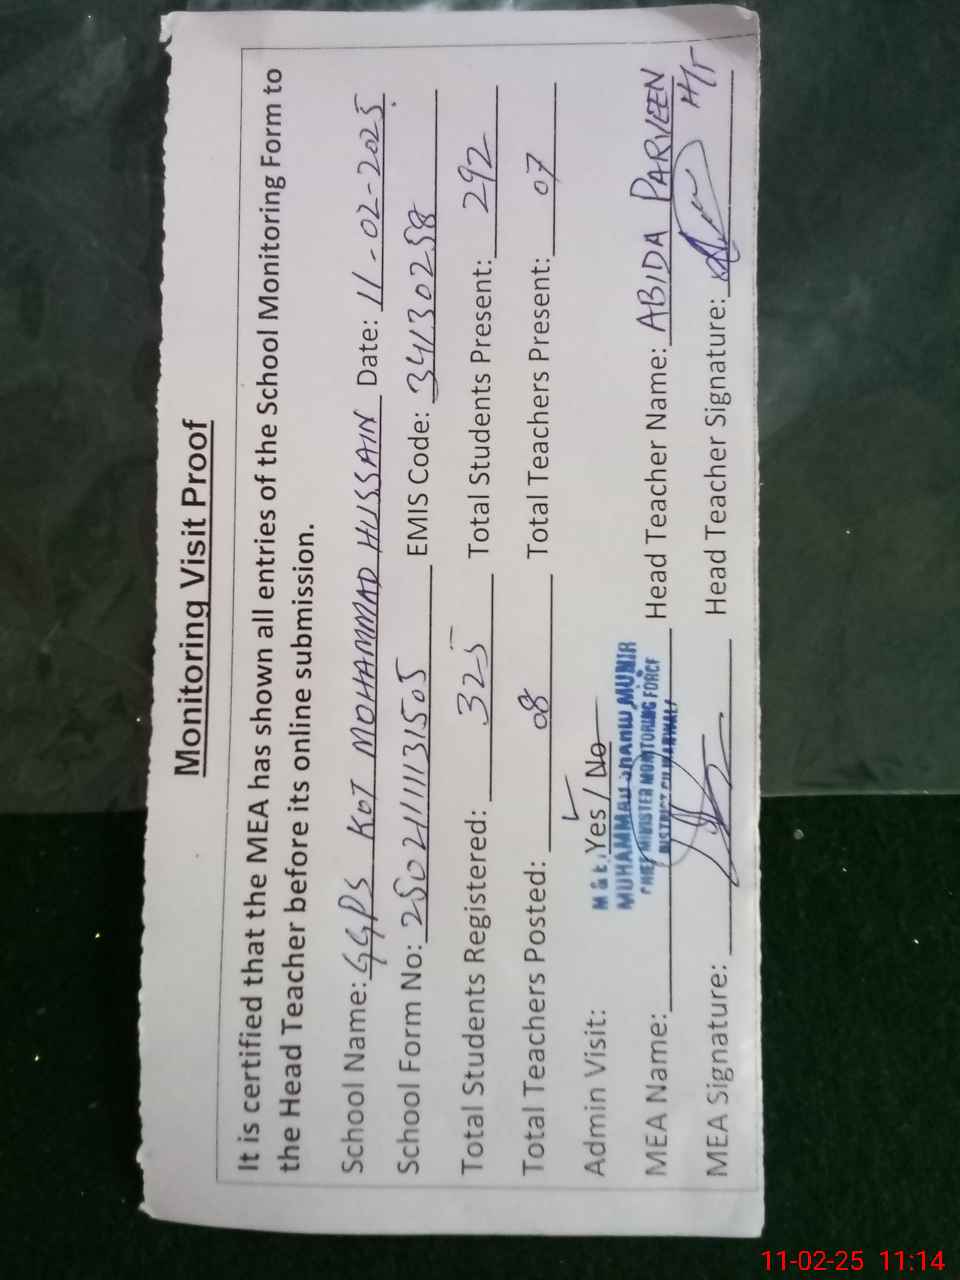 Monitoring Visit Proof
It is certified that the MEA has shown all entries of the School Monitoring Form to
the Head Teacher before its online submission.
School Name: GGPS KOT MOHAMMAD HUSSAIN Date: 11-02-2025
School Form No: EMIS Code: 34130258
Total Students Registered: 325 Total Students Present: 292
Total Teachers Posted: 08 Total Teachers Present: 07
Admin Visit: Yes / No
MUHAMMAD MUNIR
CHIEF MINISTER MONITORING FORCE
DISTRICT
MEA Name: Head Teacher Name: ABIDA PARVEEN
MEA Signature: Head Teacher Signature: H/T
11-02-25 11:14